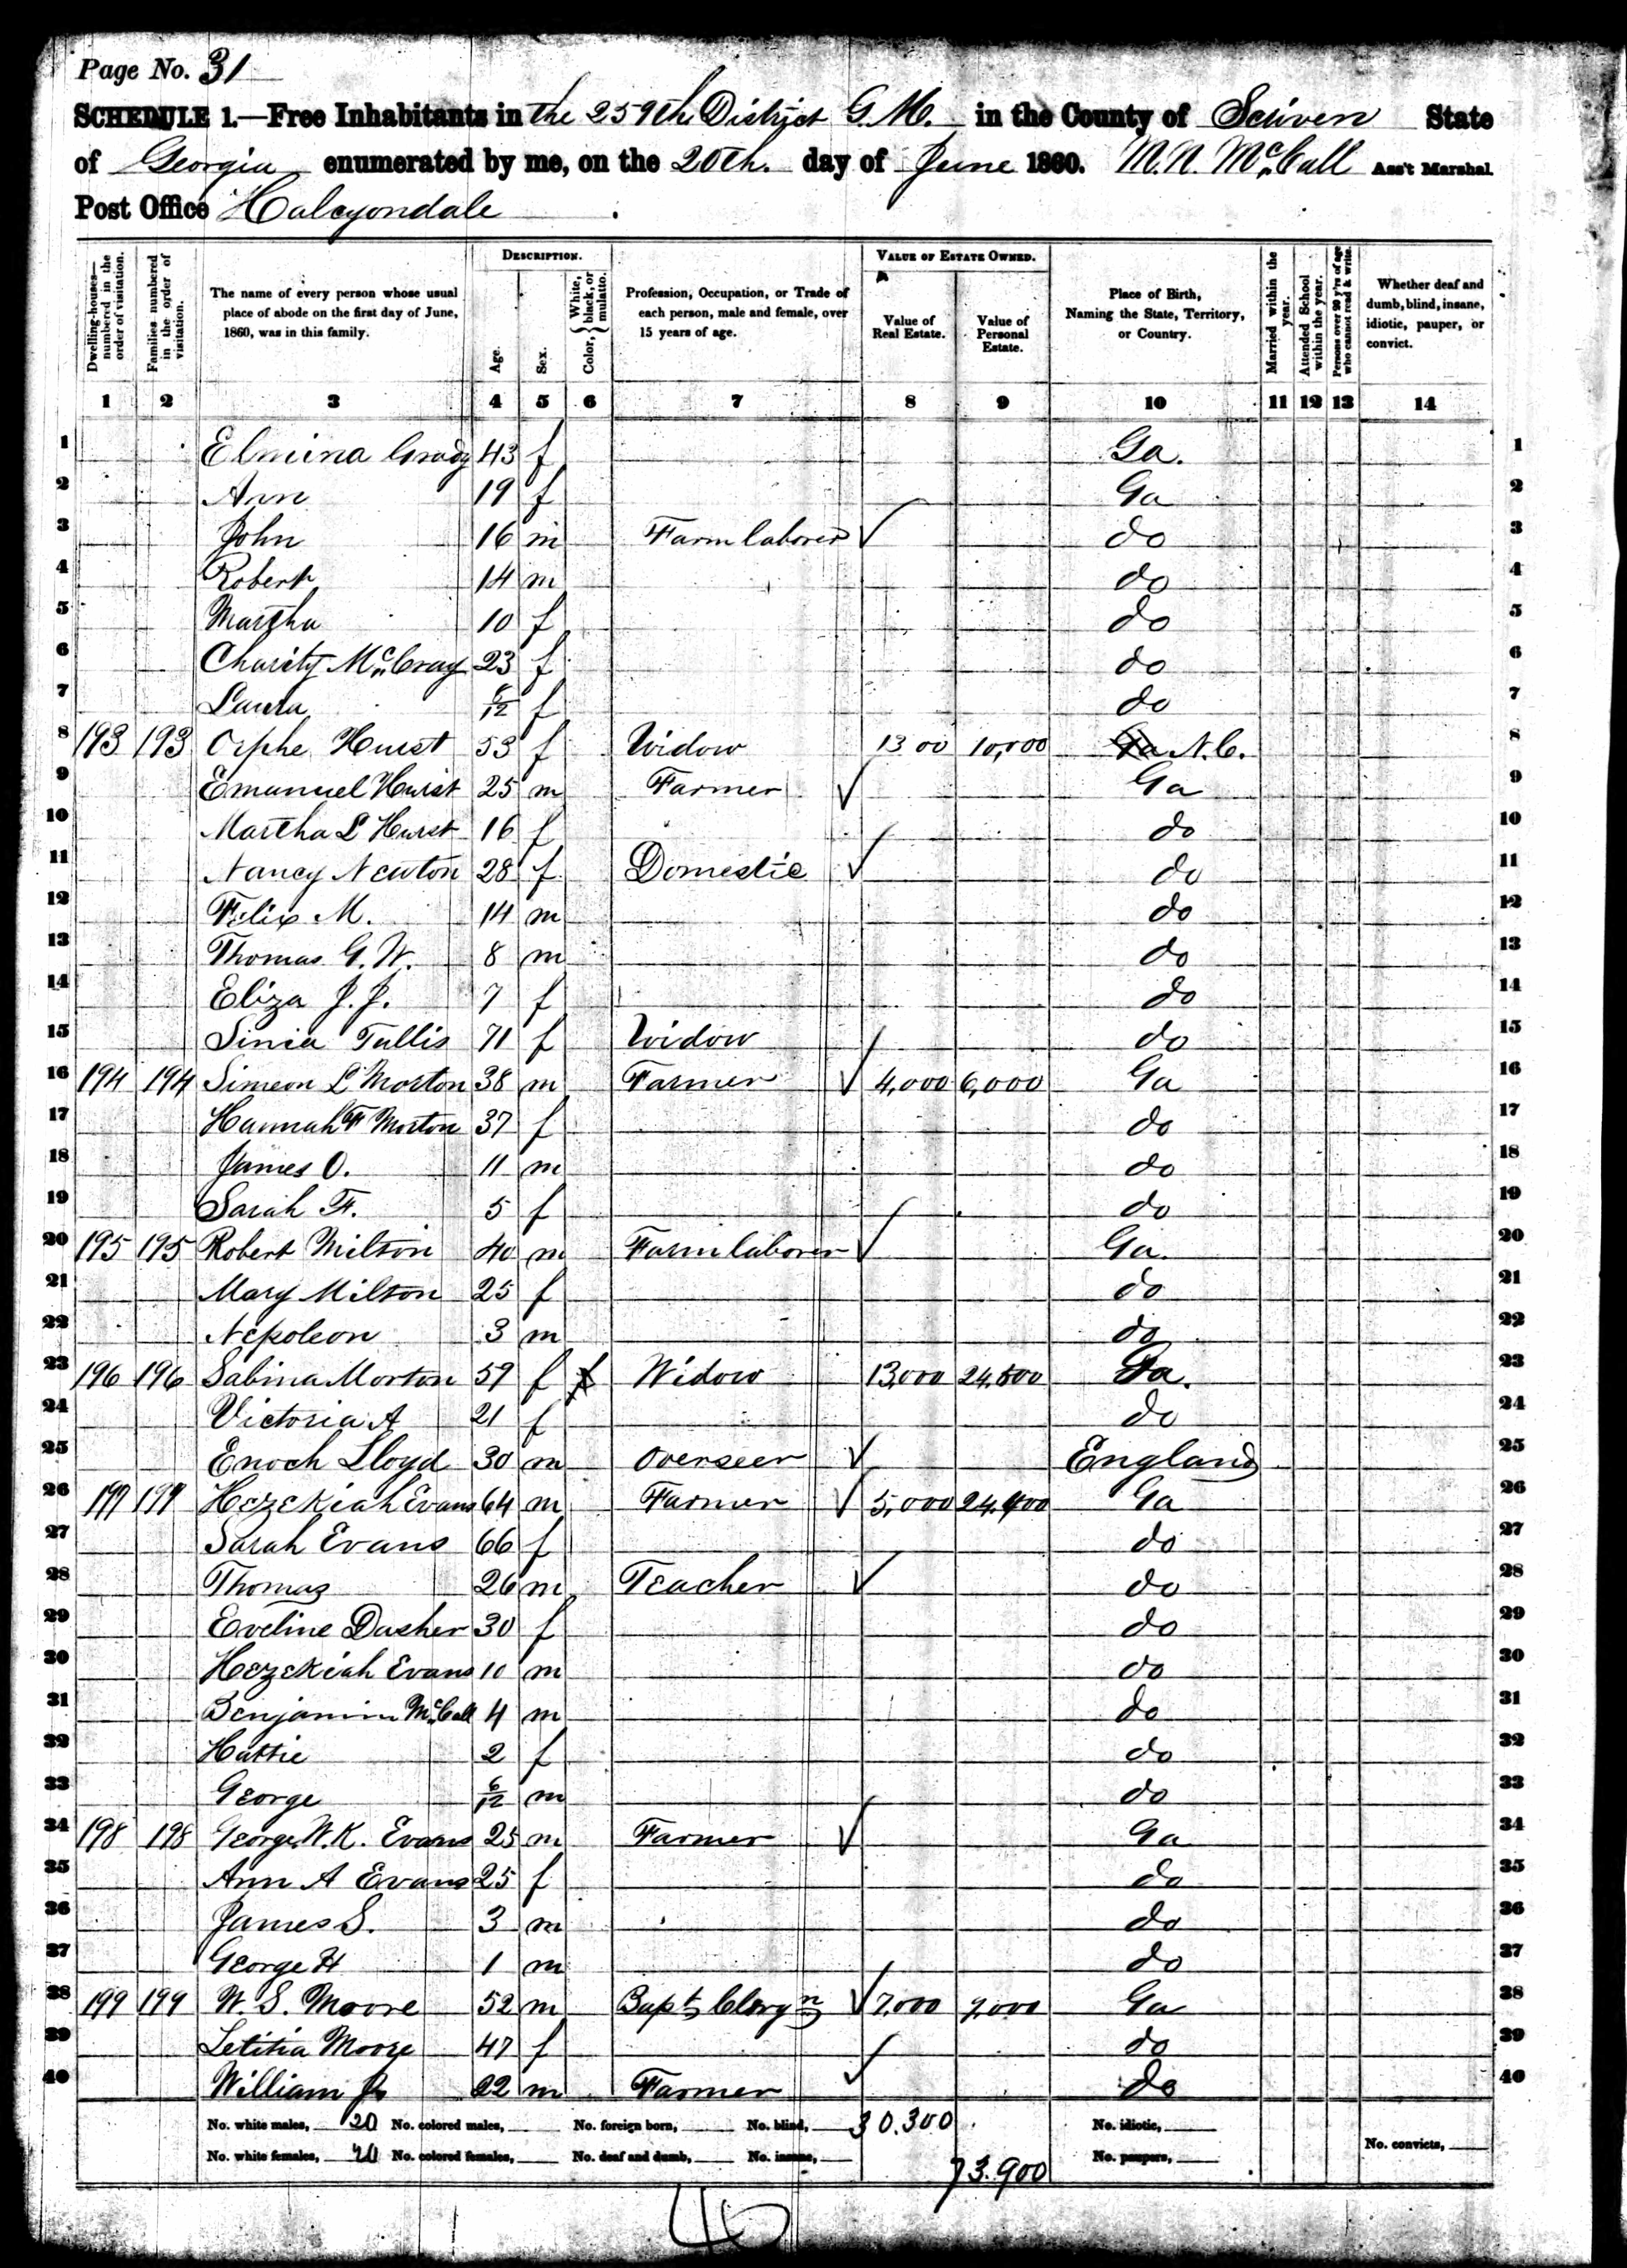 Page No. 31
SCHEDULE 1.—Free Inhabitants in the 259th District G.M. in the County of Scriven State
of Georgia enumerated by me, on the 20th. day of June 1860. M.N. McCall Ass't Marshal
Post Office Halcyondale
Dwelling-houses—numbered in the order of visitation. Families numbered in the order of visitation. The name of every person whose usual place of abode on the first day of June, 1860, was in this family. DESCRIPTION. Age. Sex. Color, { White, black, or mulatto. Profession, Occupation, or Trade of each person, male and female, over 15 years of age. VALUE OF ESTATE OWNED. Value of Real Estate. Value of Personal Estate. Place of Birth, Naming the State, Territory, or Country. Married within the year. Attended School within the year. Persons over 20 y'rs of age who cannot read & write. Whether deaf and dumb, blind, insane, idiotic, pauper, or convict.
1 2 3 4 5 6 7 8 9 10 11 12 13 14
1 Elmina Grady 43 f Ga. 1
2 Ann 19 f Ga 2
3 John 16 m Farm laborer ✓ do 3
4 Robert 14 m do 4
5 Martha 10 f do 5
6 Charity McCray 23 f do 6
7 Laura 6/12 f do 7
8 193 193 Orphe Hurst 53 f Widow 1300 10,000 N.C. 8
9 Emanuel Hurst 25 m Farmer ✓ Ga 9
10 Martha L Hurst 16 f do 10
11 Nancy Newton 28 f Domestic ✓ do 11
12 Felix M. 14 m do 12
13 Thomas G. W. 8 m do 13
14 Eliza J. J. 7 f do 14
15 Sinia Tullis 71 f Widow do 15
16 194 194 Simeon L Morton 38 m Farmer ✓ 4,000 6,000 Ga 16
17 Hannah F Morton 37 f do 17
18 James O. 11 m do 18
19 Sarah F. 5 f do 19
20 195 195 Robert Milton 40 m Farm laborer ✓ Ga. 20
21 Mary Milton 25 f do 21
22 Nepoleon 3 m do 22
23 196 196 Sabina Morton 59 f Widow 13,000 24,500 Ga. 23
24 Victoria A 21 f do 24
25 Enoch Lloyd 30 m Overseer ✓ England 25
26 197 197 Hezekiah Evans 64 m Farmer ✓ 5,000 24,400 Ga 26
27 Sarah Evans 66 f do 27
28 Thomas 26 m Teacher ✓ do 28
29 Eveline Dasher 30 f do 29
30 Hezekiah Evans 10 m do 30
31 Benjamin McCall 4 m do 31
32 Hattie 2 f do 32
33 George 6/12 m do 33
34 198 198 George W. K. Evans 25 m Farmer ✓ Ga 34
35 Ann A Evans 25 f do 35
36 James S. 3 m do 36
37 George H 1 m do 37
38 199 199 W. S. Moore 52 m Bapt Clergn ✓ 7,000 9,000 Ga 38
39 Letitia Moore 47 f do 39
40 William Jr 22 m Farmer ✓ do 40
No. white males, 20 No. colored males, No. foreign born, No. blind, 30.300 No. idiotic,
No. white females, 20 No. colored females, No. deaf and dumb, No. insane, 73.900 No. paupers, No. convicts,